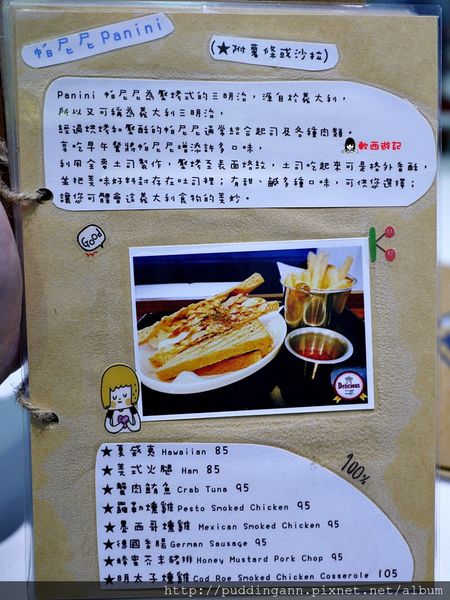 帕尼尼Panini
(★附薯條或沙拉)
Panini 帕尼尼為壓烤式的三明治，源自於義大利，
所以又可稱為義大利三明治，
經過烘烤和壓酥的帕尼尼通常結合起司及各種肉類。
享吃早午餐將帕尼尼增添許多口味，
軟西遊記
利用全麥土司製作，壓烤至表面烙紋，土司吃起來可是格外香酥，
並把美味好料封存在吐司裡；有甜、鹹多種口味，可供您選擇；
讓您可體會這義大利食物的美妙。
Good
Delicious
100%
★夏威夷 Hawaiian 85
★美式火腿 Ham 85
★蟹肉鮪魚 Crab Tuna 95
★羅勒燻雞 Pesto Smoked Chicken 95
★墨西哥燻雞 Mexican Smoked Chicken 95
★德國香腸 German Sausage 95
★蜂蜜芥末豬排 Honey Mustard Pork Chop 95
★明太子燻雞 Cod Roe Smoked Chicken Cosserole 105
http://puddingann.pixnet.net/album